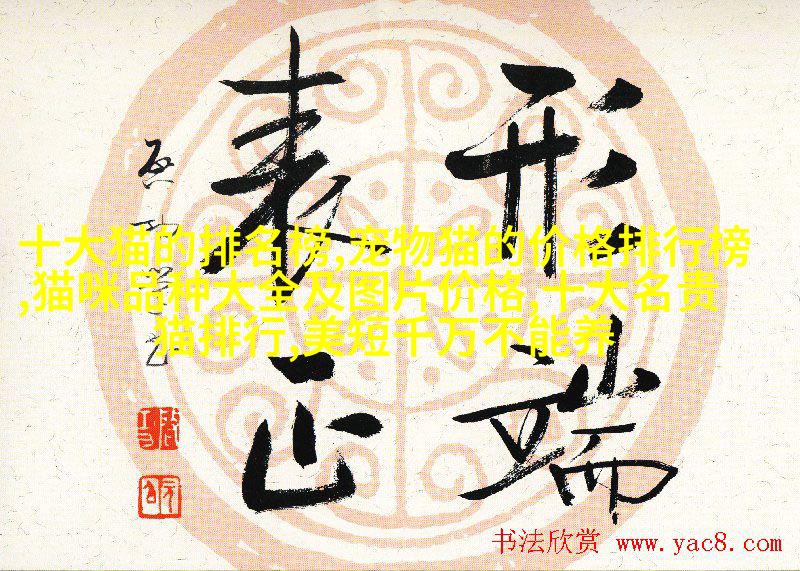 形端
表正
十大猫的排名榜,宠物猫的价格排行榜
,猫咪品种大全及图片价格,十大名贵
猫排行,美短千万不能养
书法欣赏 www.yac8.com